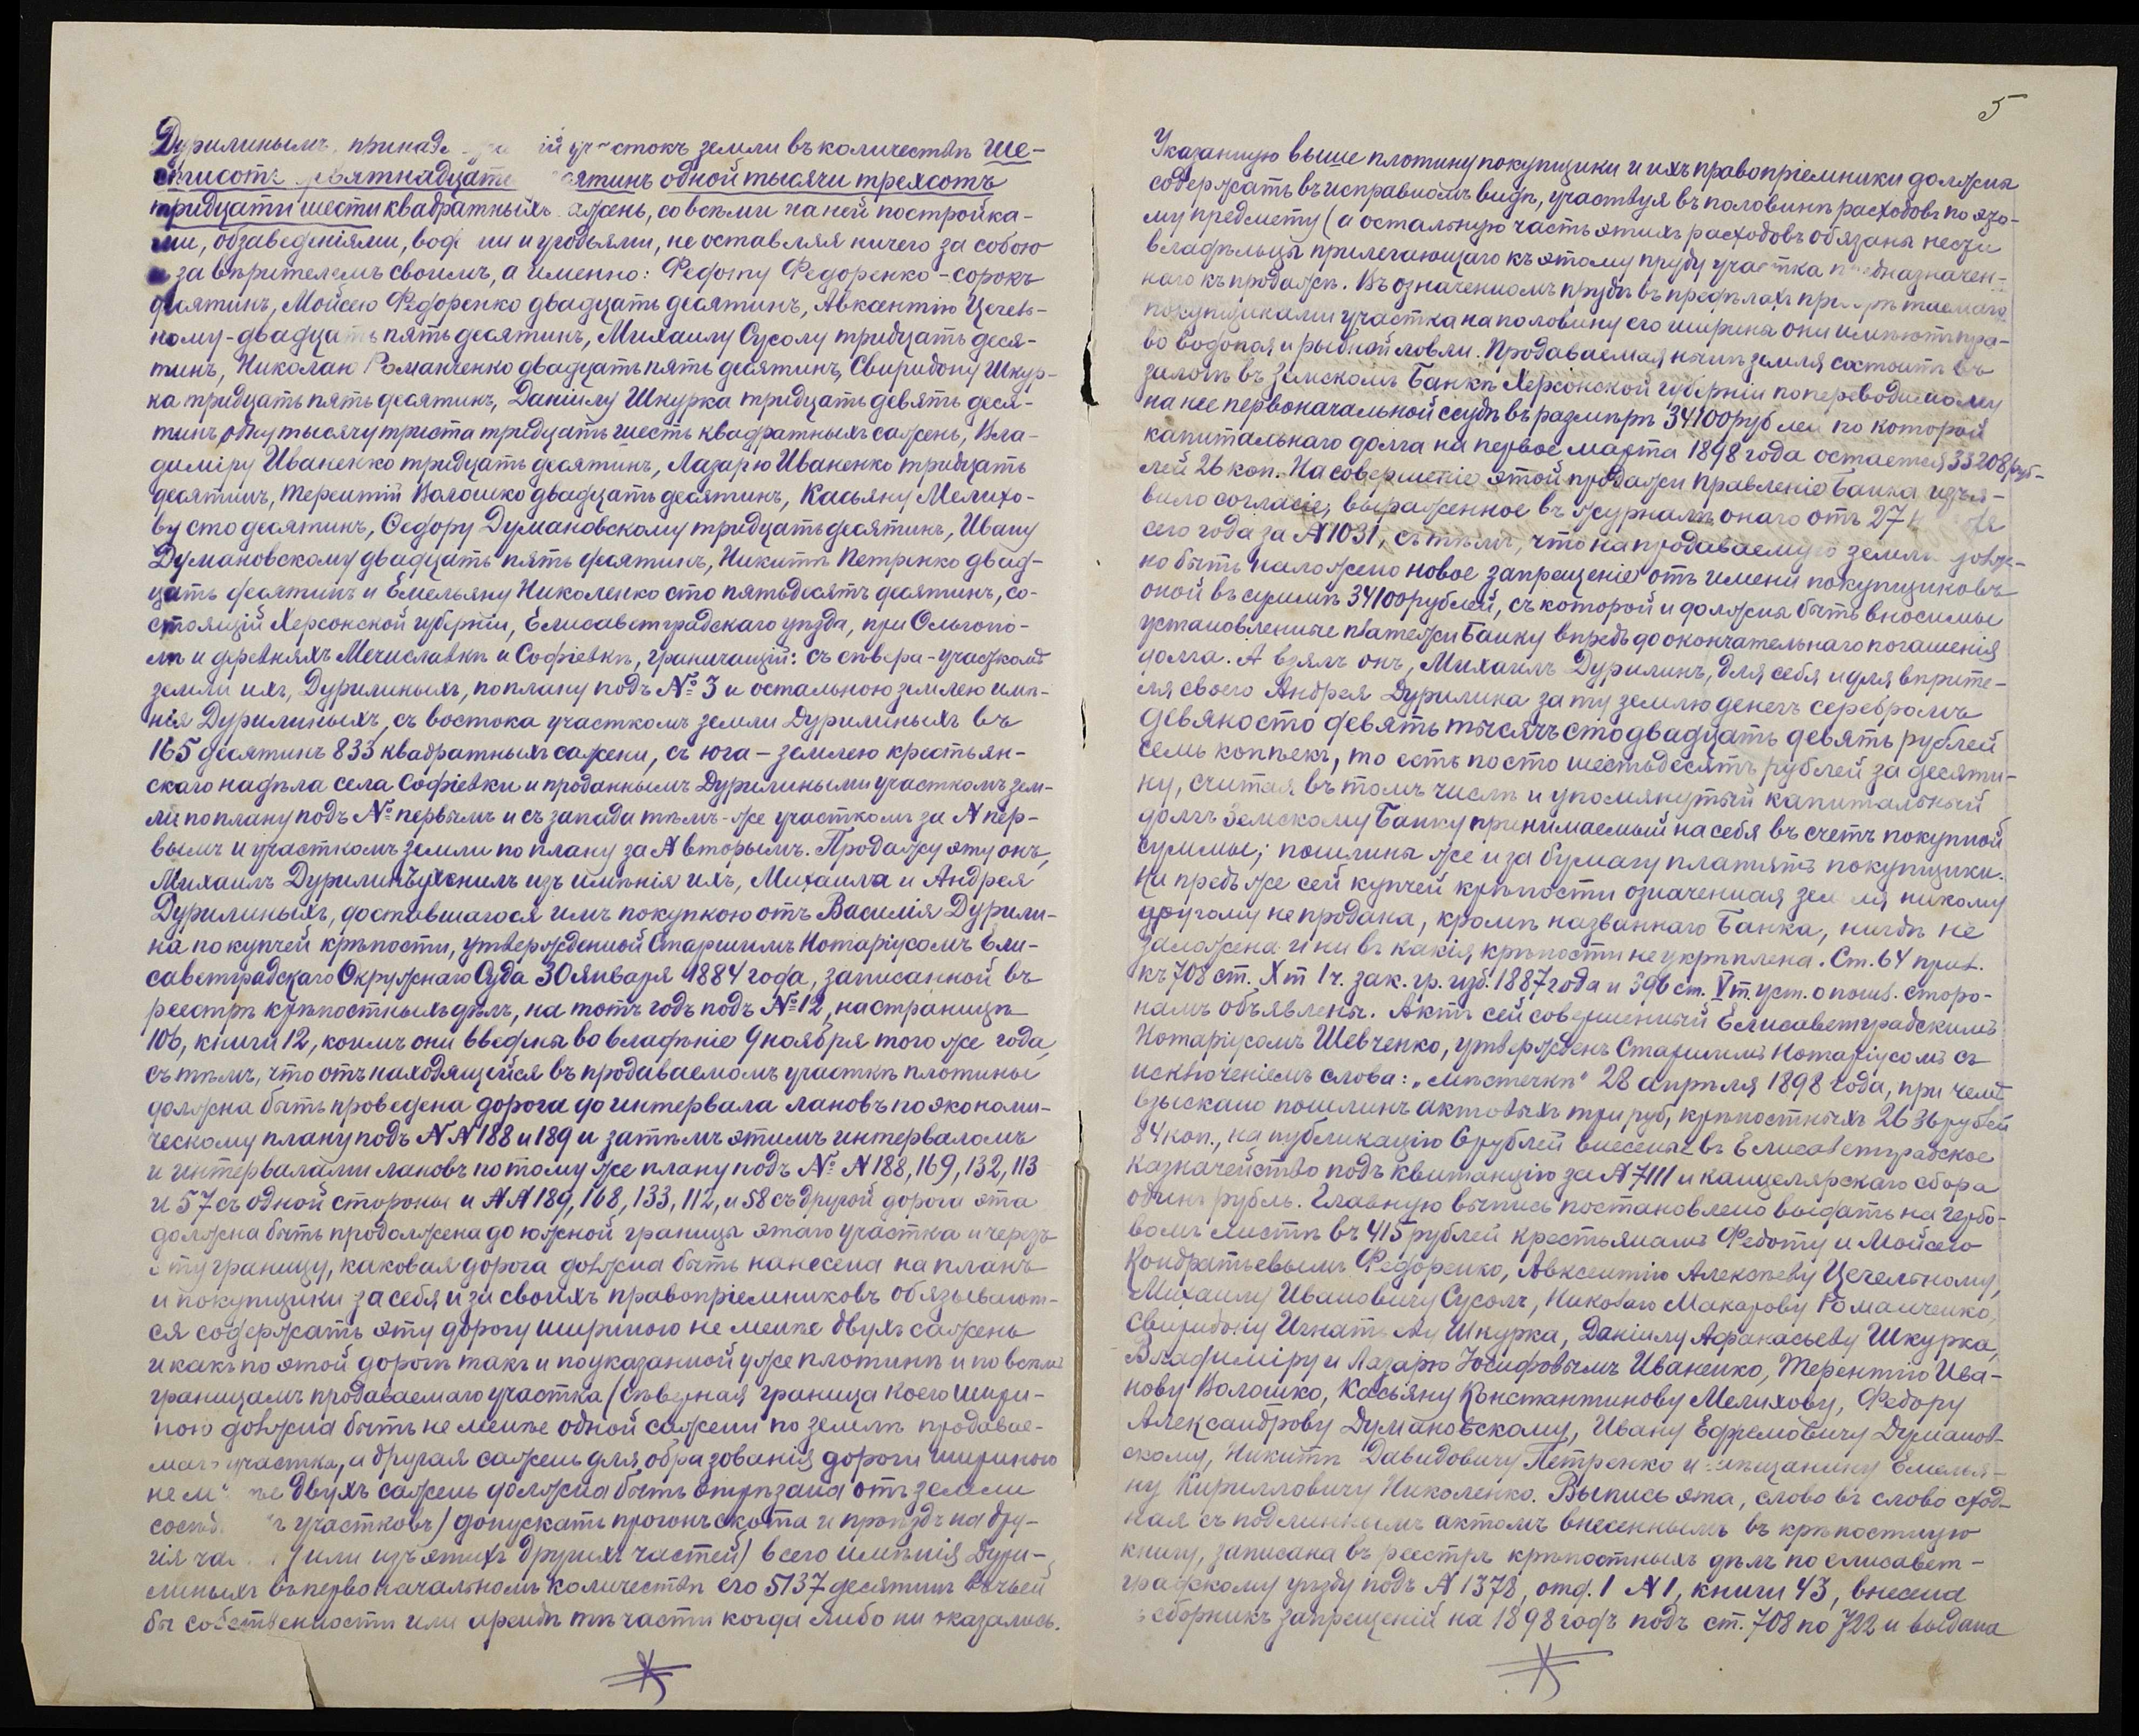 Дурилинымъ, принадл ій участокъ земли въ количествѣ ше-
стисотъ девятнадцати десятинъ одной тысячи трехсотъ
тридцати шести квадратныхъ сажень, со всѣми на ней постройка-
ми, обзаведеніями, вод ми и угодьями, не оставляя ничего за собою
и за вѣрителемъ своимъ, а именно: Федоту Федоренко - сорокъ
десятинъ, Мойсею Федоренко двадцать десятинъ, Авксентію Цечель-
ному - двадцать пять десятинъ, Михаилу Сусолу тридцать деся-
тинъ, Николаю Романченко двадцать пять десятинъ, Свиридону Шкур-
ка тридцать пять десятинъ, Даніилу Шкурка тридцать девять деся-
тинъ одну тысячу триста тридцать шесть квадратныхъ сажень, Вла-
диміру Иваненко тридцать десятинъ, Лазарю Иваненко тридцать
десятинъ, Терентій Волошко двадцать десятинъ, Касьяну Мелихо-
ву сто десятинъ, Федору Думановскому тридцать десятинъ, Ивану
Думановскому двадцать пять десятинъ, Никитѣ Петренко двад-
цать десятинъ и Емельяну Николенко сто пятьдесятъ десятинъ, со-
стоящій Херсонской губерніи, Елисаветградскаго уѣзда, при Ольгопо-
лѣ и деревняхъ Мечиславкѣ и Софіевкѣ, граничащій: съ сѣвера - участкомъ
земли ихъ, Дурилиныхъ, по плану подъ № 3 и остальною землею имѣ-
нія Дурилиныхъ, съ востока участкомъ земли Дурилиныхъ въ
165 десятинъ 833 квадратныхъ сажени, съ юга - землею крестьян-
скаго надѣла села Софіевки и проданнымъ Дурилиными участкомъ зем-
ли по плану подъ № первымъ и съ запада тѣмъ-же участкомъ за N пер-
вымъ и участкомъ земли по плану за N вторымъ. Продажу эту онъ,
Михаилъ Дурилинъ учинилъ изъ имѣнія ихъ, Михаила и Андрея
Дурилиныхъ, доставшагося имъ покупкою отъ Василія Дурили-
на по купчей крѣпости, утвержденной Старшимъ Нотаріусомъ Ели-
саветградскаго Окружнаго Суда 30 января 1884 года, записанной въ
реестрѣ крѣпостныхъ дѣлъ, на тотъ годъ подъ № 12, на страницѣ
106, книги 12, коимъ они введены во владѣніе 9 ноября того же года,
съ тѣмъ, что отъ находящейся въ продаваемомъ участкѣ плотины
должна быть проведена дорога до интервала лановъ по экономи-
ческому плану подъ NN 188 и 189 и затѣмъ этимъ интерваломъ
и интервалами лановъ по тому же плану подъ № N 188, 169, 132, 113
и 57 съ одной стороны и NN 189, 168, 133, 112, и 58 съ другой дорога эта
должна быть продолжена до южной границы этаго участка и черезъ
эту границу, каковая дорога должна быть нанесена на планъ
и покупщики за себя и за своихъ правопріемниковъ обязывают-
ся содержать эту дорогу шириною не менѣе двухъ сажень
и какъ по этой дорогѣ такъ и по указанной уже плотинѣ и по всѣмъ
границамъ продаваемаго участка (сѣверная граница коего шири-
ною должна быть не менѣе одной сажени по землѣ продавае-
маго участка, а другая сажень для образованія дороги шириною
не менѣе двухъ сажень должна быть отрѣзана отъ земли
сосѣд участковъ) допускать прогонъ скота и проѣздъ на дру-
гія ча (или изъ этихъ другихъ частей) всего имѣнія Дури-
линыхъ въ первоначальномъ количествѣ его 5137 десятинъ въ чьей
бы собственности или арендѣ тѣ части когда либо ни оказались.
5
Указанную выше плотину покупщики и ихъ правопріемники должны
содержать въ исправномъ видѣ, участвуя въ половинѣ расходовъ по это-
му предмету (а остальную часть этихъ расходовъ обязаны нести
владѣльцы прилегающаго къ этому пруду участка предназначен-
наго къ продажѣ. Въ означенномъ прудѣ въ предѣлахъ прі таемаго
покупщиками участка на половину его ширины они имѣютъ пра-
во водопоя и рыбной ловли. Продаваемая нынѣ земля состоитъ въ
залогѣ въ Земскомъ Банкѣ Херсонской губерніи по переводимому
на нее первоначальной ссудѣ въ размѣрѣ 34100 рублей по которой
капитальнаго долга на первое марта 1898 года остается 33208 руб-
лей 26 коп. На совершеніе этой продажи Правленіе Банка изъя-
вило согласіе, выраженное въ журналѣ онаго отъ 27
сего года за N 1031, съ тѣмъ, что на продаваемую землю долж-
но быть наложено новое запрещеніе отъ имени покупщиковъ
оной въ суммѣ 34100 рублей, съ которой и должны быть вносимы
установленные платежи Банку впредь до окончательнаго погашенія
долга. А взялъ онъ, Михаилъ Дурилинъ, для себя и для вѣрите-
ля своего Андрея Дурилина за ту землю денегъ серебромъ
девяносто девять тысячъ сто двадцать девять рублей
семь копѣекъ, то есть по сто шестьдесятъ рублей за десяти-
ну, считая въ томъ числѣ и упомянутый капитальный
долгъ Земскому Банку принимаемый на себя въ счетъ покупной
суммы; пошлины же и за бумагу платятъ покупщики.
Ни предь же сей купчей крѣпости означенная земля никому
другому не продана, кромѣ названнаго Банка, нигдѣ не
заложена и ни въ какія крѣпости не укрѣплена. Ст. 64 прил.
къ 708 ст. X т 1 ч. зак. гр. изд. 1887 года и 396 ст. V т. уст. о пошл. сторо-
намъ объявлены. Актъ сей совершенный Елисаветградскимъ
Нотаріусомъ Шевченко, утвержденъ Старшимъ Нотаріусомъ съ
исключеніемъ слова: „мѣстечкѣ" 28 апрѣля 1898 года, при чемъ
взыскано пошлинъ актовыхъ три руб, крѣпостныхъ 2636 рублей
84 коп., на публикацію 6 рублей внесены въ Елисаветградское
Казначейство подъ квитанцію за N 7111 и канцелярскаго сбора
одинъ рубль. Главную выпись постановлено выдать на гербо-
вомъ листѣ въ 415 рублей крестьянамъ Федоту и Мойсею
Кондратьевымъ Федоренко, Авксентію Алексѣеву Цечельному,
Михаилу Ивановичу Сусолъ, Николаю Макарову Романченко,
Свиридону Игнатьеву Шкурка, Даніилу Афанасьеву Шкурка,
Владиміру и Лазарю Іосифовымъ Иваненко, Терентію Ива-
нову Волошко, Касьяну Константинову Мелихову, Федору
Александрову Думановскому, Ивану Ефремовичу Думанов-
скому, Никитѣ Давидовичу Петренко и мѣщанину Емелья-
ну Кирилловичу Николенко. Выпись эта, слово въ слово сход-
ная съ подлиннымъ актомъ внесеннымъ въ крѣпостную
книгу, записана въ реестръ крѣпостныхъ дѣлъ по елисавет-
градскому уѣзду подъ N 1378, отд. 1 N 1, книги 43, внесена
сборникъ запрещеній на 1898 годъ подъ ст. 708 по 722 и выдана